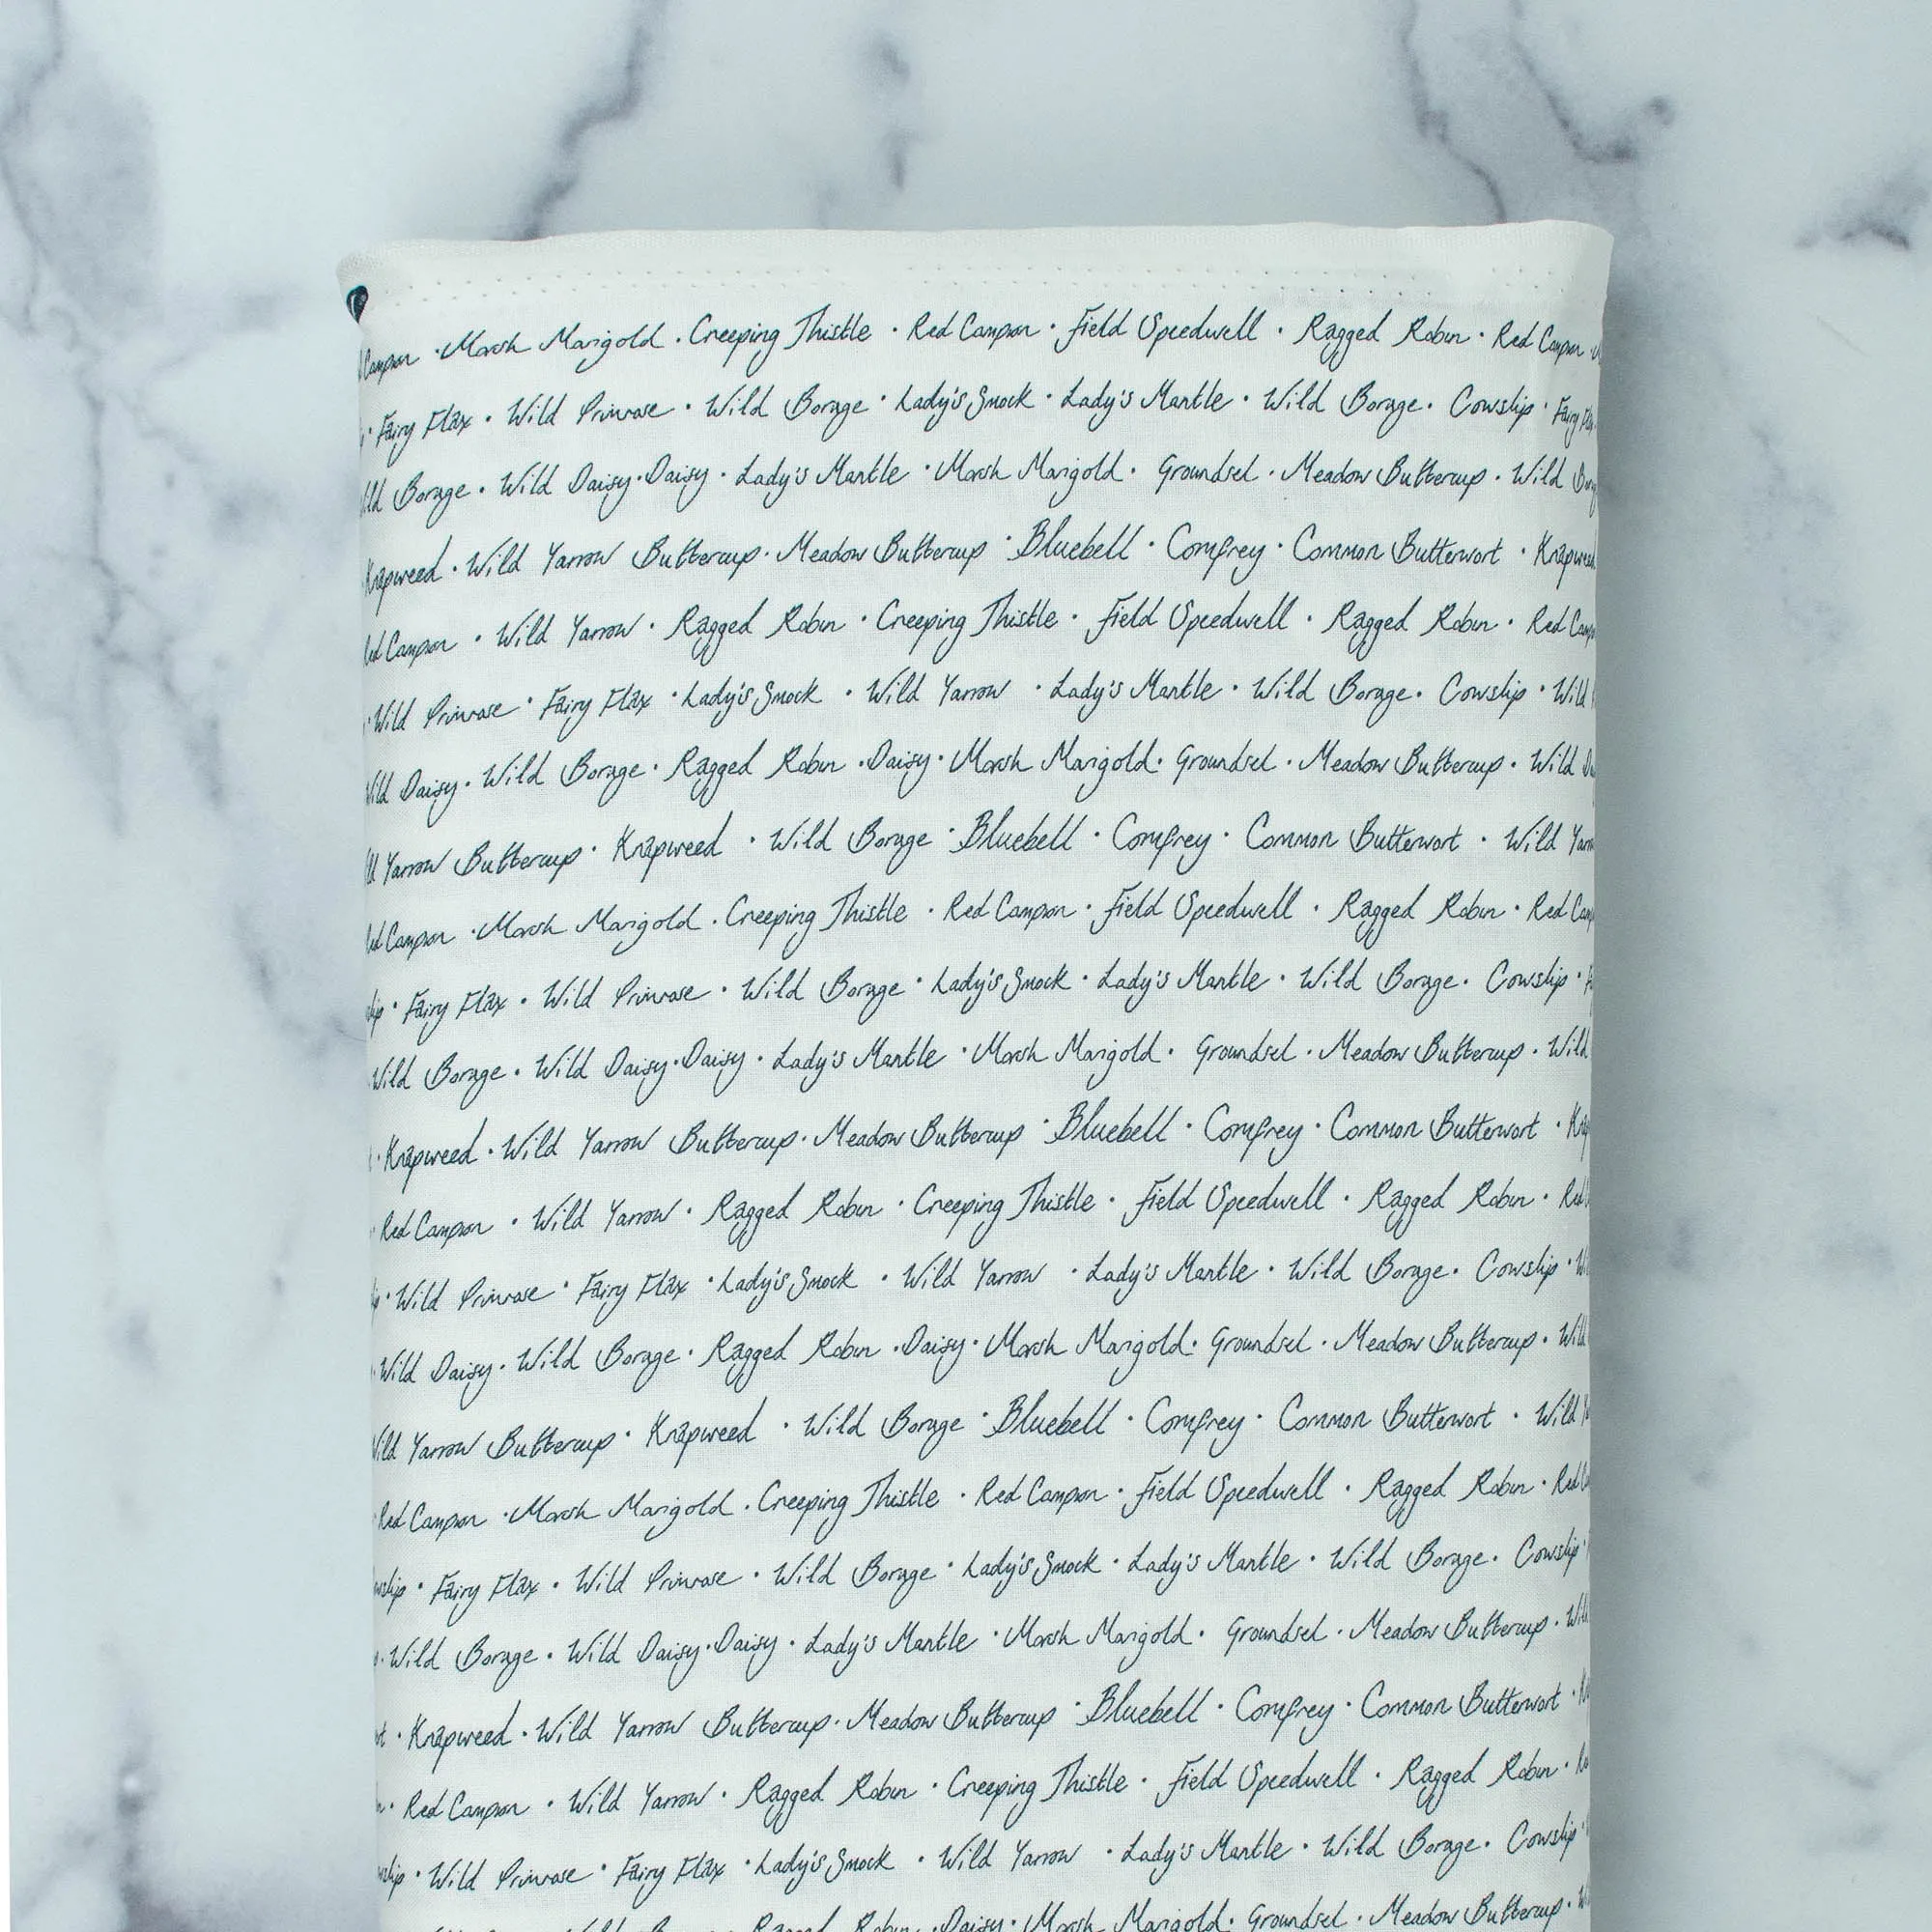 Campion · Marsh Marigold · Creeping Thistle · Red Campion · Field Speedwell · Ragged Robin · Red Campion ·
· Fairy Flax · Wild Primrose · Wild Borage · Lady's Smock · Lady's Mantle · Wild Borage · Cowslip · Fairy
Borage · Wild Daisy · Daisy · Lady's Mantle · Marsh Marigold · Groundsel · Meadow Buttercup · Wild
Knapweed · Wild Yarrow Buttercup · Meadow Buttercup · Bluebell · Comfrey · Common Butterwort · Knapweed
Red Campion · Wild Yarrow · Ragged Robin · Creeping Thistle · Field Speedwell · Ragged Robin · Red
· Wild Primrose · Fairy Flax · Lady's Smock · Wild Yarrow · Lady's Mantle · Wild Borage · Cowslip · Wild
Wild Daisy · Wild Borage · Ragged Robin · Daisy · Marsh Marigold · Groundsel · Meadow Buttercup · Wild
Yarrow Buttercup · Knapweed · Wild Borage · Bluebell · Comfrey · Common Butterwort · Wild
Red Campion · Marsh Marigold · Creeping Thistle · Red Campion · Field Speedwell · Ragged Robin · Red
· Fairy Flax · Wild Primrose · Wild Borage · Lady's Smock · Lady's Mantle · Wild Borage · Cowslip ·
Wild Borage · Wild Daisy · Daisy · Lady's Mantle · Marsh Marigold · Groundsel · Meadow Buttercup · Wild
· Knapweed · Wild Yarrow Buttercup · Meadow Buttercup · Bluebell · Comfrey · Common Butterwort ·
· Red Campion · Wild Yarrow · Ragged Robin · Creeping Thistle · Field Speedwell · Ragged Robin · Red
· Wild Primrose · Fairy Flax · Lady's Smock · Wild Yarrow · Lady's Mantle · Wild Borage · Cowslip ·
· Wild Daisy · Wild Borage · Ragged Robin · Daisy · Marsh Marigold · Groundsel · Meadow Buttercup · Wild
Wild Yarrow Buttercup · Knapweed · Wild Borage · Bluebell · Comfrey · Common Butterwort · Wild
· Red Campion · Marsh Marigold · Creeping Thistle · Red Campion · Field Speedwell · Ragged Robin · Red
· Fairy Flax · Wild Primrose · Wild Borage · Lady's Smock · Lady's Mantle · Wild Borage · Cowslip ·
· Wild Borage · Wild Daisy · Daisy · Lady's Mantle · Marsh Marigold · Groundsel · Meadow Buttercup ·
· Knapweed · Wild Yarrow Buttercup · Meadow Buttercup · Bluebell · Comfrey · Common Butterwort ·
· Red Campion · Wild Yarrow · Ragged Robin · Creeping Thistle · Field Speedwell · Ragged Robin ·
· Wild Primrose · Fairy Flax · Lady's Smock · Wild Yarrow · Lady's Mantle · Wild Borage · Cowslip ·
Ragged Robin · Daisy · Marsh Marigold · Groundsel · Meadow Buttercup ·